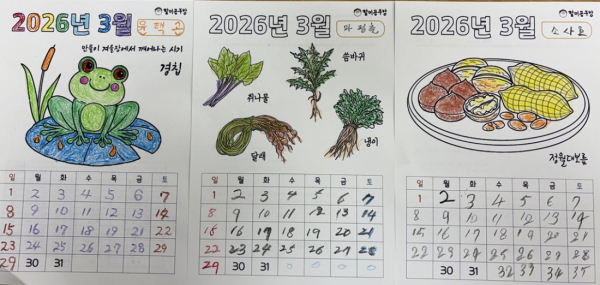 2026년 3월
만물이 겨울잠에서 깨어나는 시기
경칩
일 월 화 수 목 금 토
1 2 3 4 5 6 7
8 9 10 11 12 13 14
15 16 17 18 19 20 22
23 24 25 26 27 28 29
29 30 31
2026년 3월
씀바귀
취나물
달래
냉이
일 월 화 수 목 금 토
1 2 3 4 5 6 7
8 9 10 11 12 13 14
15 16 17 18 19 20 21
22 23 24 25 26 27 28
29 30 31 0 0 0 0
2026년 3월
정월대보름
일 월 화 수 목 금 토
1 2 3 4 5 6 7
8 9 10 11 12 13 14
15 16 17 18 19 20 21
22 23 24 25 26 27 28
30 31 32 33 34 35